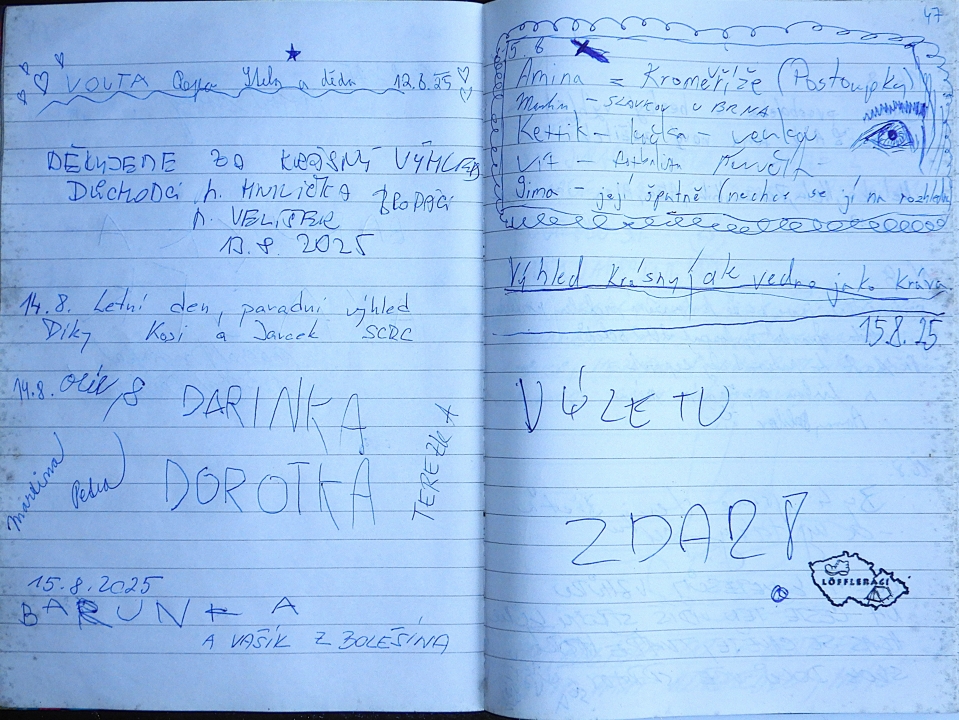 VOLTA a děda 12.8.25
DĚKUJEME ZA KRÁSNÝ VÝHLED
DŮCHODCI p. HNILIČKA
p. VELISEK
13.8. 2025
14.8. Letní den, paradní výhled
Díky Kasi a Jarcek SCRC
14.8.
DARINKA
Martina Petra
DOROTKA
TEREZKA
15.8.2025
BARUNKA
A VAŠÍK Z BOLEŠÍNA
47
15.8
Amina = Kroměříže (Postoupky)
Martin - SLAVKOV U BRNA
Kettik -
Vít - fotbalista
Jima - její špatně (nechce se jí na rozhlednu
Výhled krásný, ale vedro jako kráva
15.8.25
VÝLETU
ZDAR!
LÖFFLERÁCI